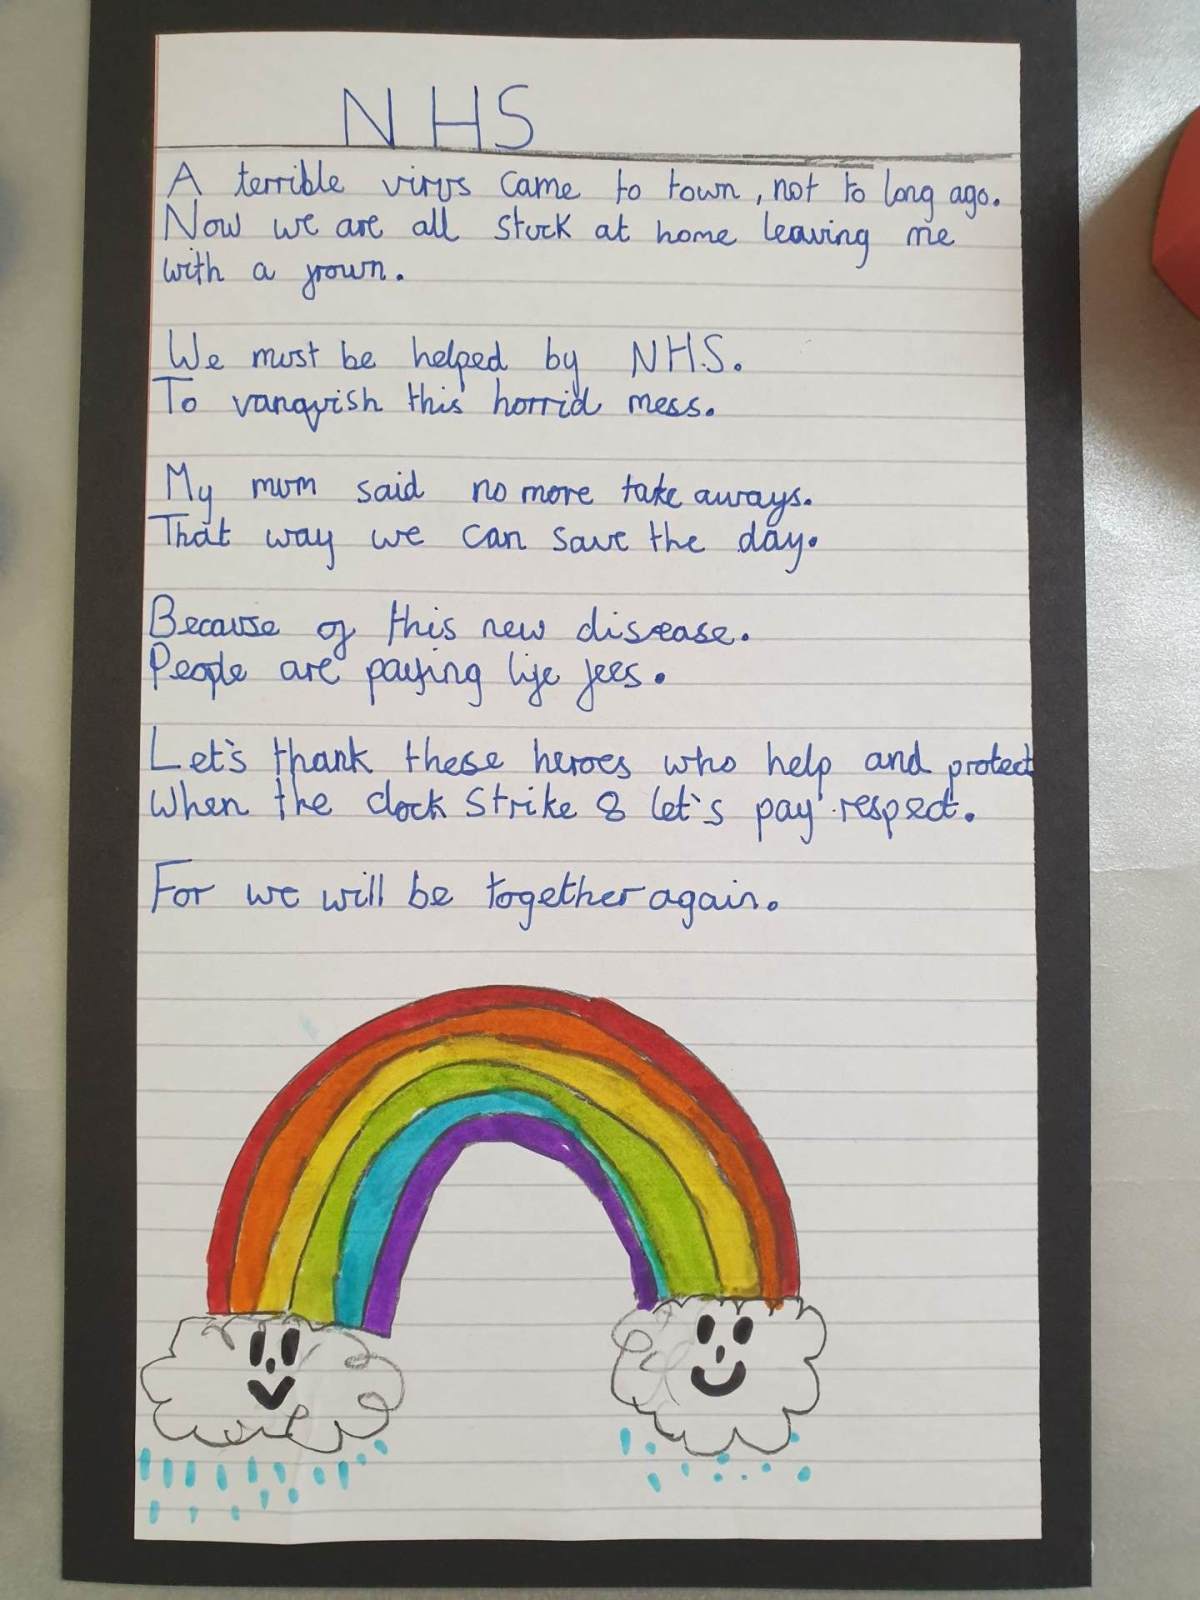 NHS
A terrible virus came to town, not to long ago.
Now we are all stuck at home leaving me
with a frown.
We must be helped by NHS.
To vanquish this horrid mess.
My mum said no more take aways.
That way we can save the day.
Because of this new disease.
People are paying life fees.
Let's thank these heroes who help and protect
When the clock strike 8 let's pay respect.
For we will be together again.